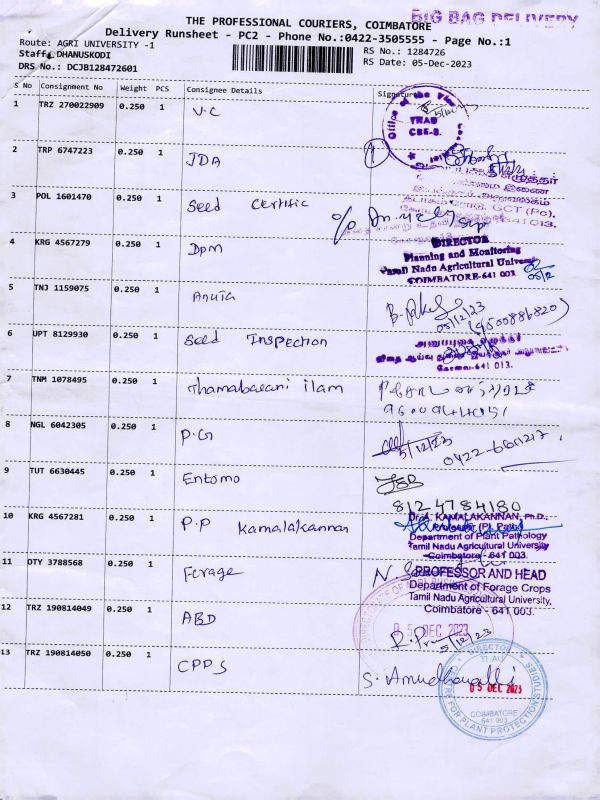 BIG BAG DELIVERY
THE PROFESSIONAL COURIERS, COIMBATORE
Delivery Runsheet - PC2 - Phone No.:0422-3505555 - Page No.:1
Route: AGRI UNIVERSITY -1
RS No.: 1284726
Staff: DHANUSKODI
RS Date: 05-Dec-2023
DRS No.: DCJB128472601
S No Consignment No Weight PCS Consignee Details Signature
1 TRZ 270022909 0.250 1 V.C
Office of the Vice
TNAU
CBE-3.
2 TRP 6747223 0.250 1 JDA
3 POL 1601470 0.250 1 Seed Certific
4 KRG 4567279 0.250 1 Dpm
DIRECTOR
Planning and Monitoring
Tamil Nadu Agricultural University
COIMBATORE-641 003
5 TNJ 1159075 0.250 1 Anuta
05/12/23
(9500886820)
6 UPT 8129930 0.250 1 Seed Inspection
7 TNM 1078495 0.250 1 Thamabarani illam
8 NGL 6042305 0.250 1 P.G
5/12/23
0422-6611217
9 TUT 6630445 0.250 1 Entomo
8124784180
10 KRG 4567281 0.250 1 P.P Kamalakannan
Dr. A. KAMALAKANNAN, Ph.D.,
Professor (Pl. Path)
Department of Plant Pathology
Tamil Nadu Agricultural University
Coimbatore - 641 003.
11 DTY 3788568 0.250 1 Forage
PROFESSOR AND HEAD
Department of Forage Crops
Tamil Nadu Agricultural University,
Coimbatore - 641 003.
12 TRZ 190814049 0.250 1 ABD
05 DEC 2023
5/12/23
13 TRZ 190814050 0.250 1 CPPS
S. Amudhavalli
DIRECTOR
TNAU
05 DEC 2023
COIMBATORE
641 003
CENTRE FOR PLANT PROTECTION STUDIES